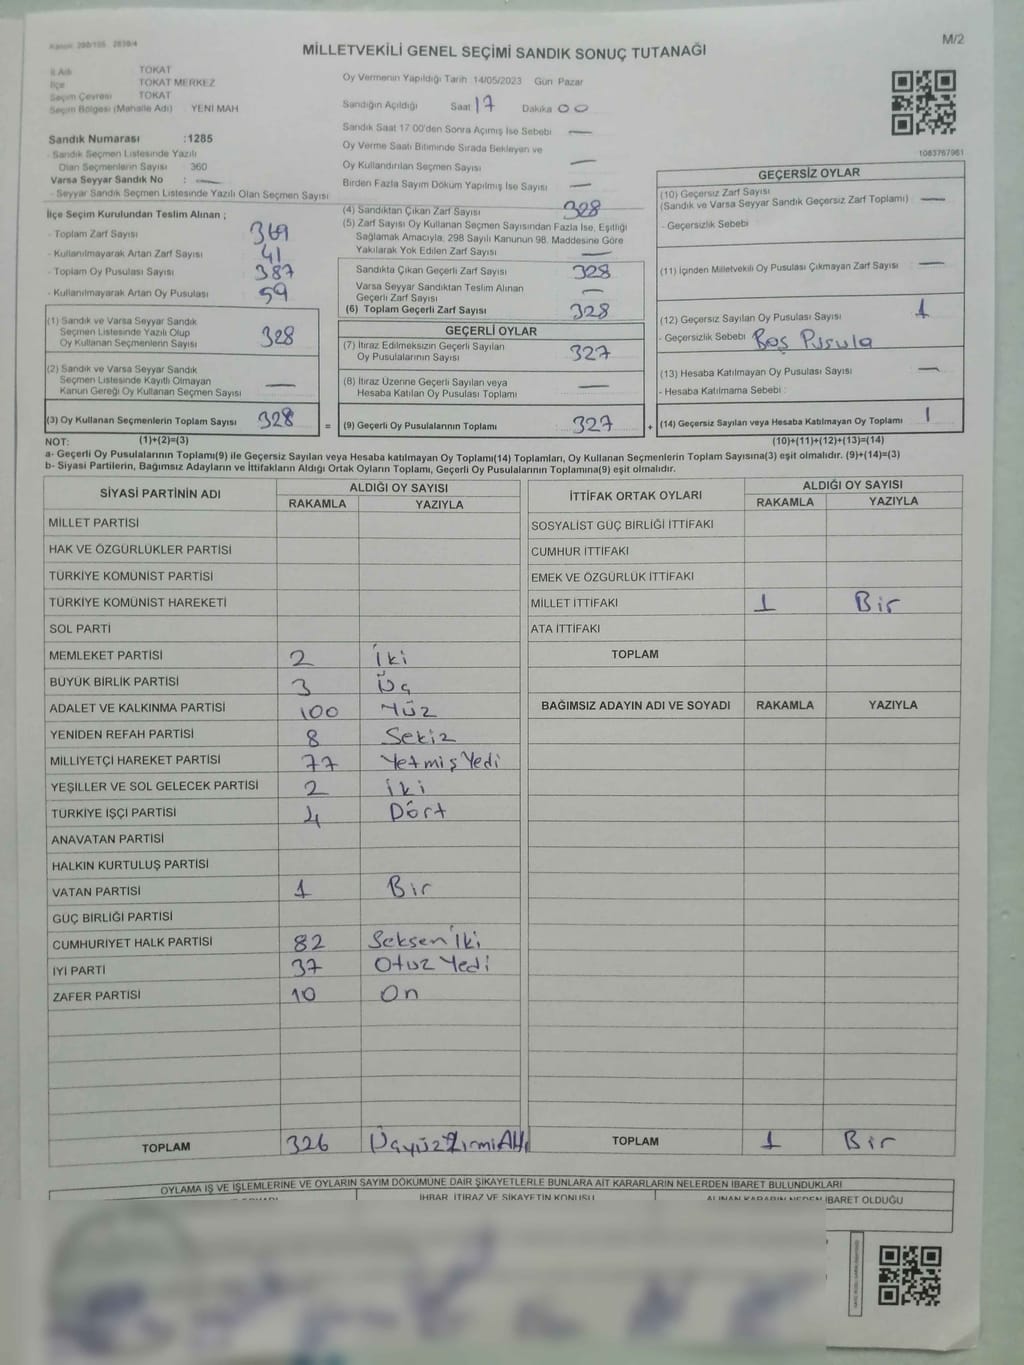 MİLLETVEKİLİ GENEL SEÇİMİ SANDIK SONUÇ TUTANAĞI
M/2
İl Adı TOKAT
İlçe TOKAT MERKEZ
Seçim Çevresi TOKAT
Seçim Bölgesi (Mahalle Adı) YENI MAH
Oy Vermenin Yapıldığı Tarih 14/05/2023 Gün Pazar
Sandığın Açıldığı Saat 17 Dakika 00
Sandık Saat 17 00'den Sonra Açımış İse Sebebi —
Oy Verme Saati Bitiminde Sırada Bekleyen ve
Oy Kullandırılan Seçmen Sayısı —
Birden Fazla Sayım Döküm Yapılmış İse Sayısı —
1083767961
Sandık Numarası :1285
- Sandık Seçmen Listesinde Yazılı
Olan Seçmenlerin Sayısı 360
Varsa Seyyar Sandık No : —
- Seyyar Sandık Seçmen Listesinde Yazılı Olan Seçmen Sayısı
İlçe Seçim Kurulundan Teslim Alınan ;
- Toplam Zarf Sayısı 369
- Kullanılmayarak Artan Zarf Sayısı 41
- Toplam Oy Pusulası Sayısı 387
- Kullanılmayarak Artan Oy Pusulası 59
(1) Sandık ve Varsa Seyyar Sandık
Seçmen Listesinde Yazılı Olup
Oy Kullanan Seçmenlerin Sayısı 328
(2) Sandık ve Varsa Seyyar Sandık
Seçmen Listesinde Kayıtlı Olmayan
Kanun Gereği Oy Kullanan Seçmen Sayısı —
(3) Oy Kullanan Seçmenlerin Toplam Sayısı 328
(4) Sandıktan Çıkan Zarf Sayısı 328
(5) Zarf Sayısı Oy Kullanan Seçmen Sayısından Fazla İse, Eşitliği
Sağlamak Amacıyla, 298 Sayılı Kanunun 98. Maddesine Göre
Yakılarak Yok Edilen Zarf Sayısı —
Sandıkta Çıkan Geçerli Zarf Sayısı 328
Varsa Seyyar Sandıktan Teslim Alınan
Geçerli Zarf Sayısı —
(6) Toplam Geçerli Zarf Sayısı 328
GEÇERLİ OYLAR
(7) İtiraz Edilmeksizin Geçerli Sayılan
Oy Pusulalarının Sayısı 327
(8) İtiraz Üzerine Geçerli Sayılan veya
Hesaba Katılan Oy Pusulası Toplamı —
= (9) Geçerli Oy Pusulalarının Toplamı 327
GEÇERSİZ OYLAR
(10) Geçersiz Zarf Sayısı
(Sandık ve Varsa Seyyar Sandık Geçersiz Zarf Toplamı) —
- Geçersizlik Sebebi
(11) İçinden Milletvekili Oy Pusulası Çıkmayan Zarf Sayısı —
(12) Geçersiz Sayılan Oy Pusulası Sayısı 1
- Geçersizlik Sebebi Boş Pusula
(13) Hesaba Katılmayan Oy Pusulası Sayısı —
- Hesaba Katılmama Sebebi :
+ (14) Geçersiz Sayılan veya Hesaba Katılmayan Oy Toplamı 1
NOT: (1)+(2)=(3) (10)+(11)+(12)+(13)=(14)
a- Geçerli Oy Pusulalarının Toplamı(9) ile Geçersiz Sayılan veya Hesaba katılmayan Oy Toplamı(14) Toplamları, Oy Kullanan Seçmenlerin Toplam Sayısına(3) eşit olmalıdır. (9)+(14)=(3)
b- Siyasi Partilerin, Bağımsız Adayların ve İttifakların Aldığı Ortak Oyların Toplamı, Geçerli Oy Pusulalarının Toplamına(9) eşit olmalıdır.
SİYASİ PARTİNİN ADI ALDIĞI OY SAYISI
RAKAMLA YAZIYLA
MİLLET PARTİSİ
HAK VE ÖZGÜRLÜKLER PARTİSİ
TÜRKİYE KOMÜNİST PARTİSİ
TÜRKİYE KOMÜNİST HAREKETİ
SOL PARTİ
MEMLEKET PARTİSİ 2 İki
BÜYÜK BİRLİK PARTİSİ 3 Üç
ADALET VE KALKINMA PARTİSİ 100 Yüz
YENİDEN REFAH PARTİSİ 8 Sekiz
MİLLİYETÇİ HAREKET PARTİSİ 77 Yetmiş Yedi
YEŞİLLER VE SOL GELECEK PARTİSİ 2 İki
TÜRKİYE İŞÇİ PARTİSİ 4 Dört
ANAVATAN PARTİSİ
HALKIN KURTULUŞ PARTİSİ
VATAN PARTİSİ 1 Bir
GÜÇ BİRLİĞİ PARTİSİ
CUMHURİYET HALK PARTİSİ 82 Seksen İki
İYİ PARTİ 37 Otuz Yedi
ZAFER PARTİSİ 10 On
TOPLAM 326 ÜçyüzYirmiAltı
İTTİFAK ORTAK OYLARI ALDIĞI OY SAYISI
RAKAMLA YAZIYLA
SOSYALİST GÜÇ BİRLİĞİ İTTİFAKI
CUMHUR İTTİFAKI
EMEK VE ÖZGÜRLÜK İTTİFAKI
MİLLET İTTİFAKI 1 Bir
ATA İTTİFAKI
TOPLAM
BAĞIMSIZ ADAYIN ADI VE SOYADI RAKAMLA YAZIYLA
TOPLAM 1 Bir
OYLAMA İŞ VE İŞLEMLERİNE VE OYLARIN SAYIM DÖKÜMÜNE DAİR ŞİKAYETLERLE BUNLARA AİT KARARLARIN NELERDEN İBARET BULUNDUKLARI
İHBAR, İTİRAZ VE ŞİKAYETİN KONUSU
ALINAN KARARIN NEDEN İBARET OLDUĞU